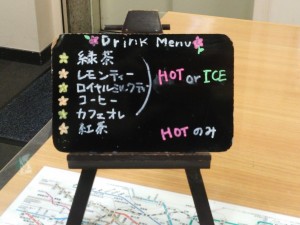 Drink Menu
緑茶
レモンティー
ロイヤルミルクティー
コーヒー
カフェオレ
HOT or ICE
紅茶 HOTのみ